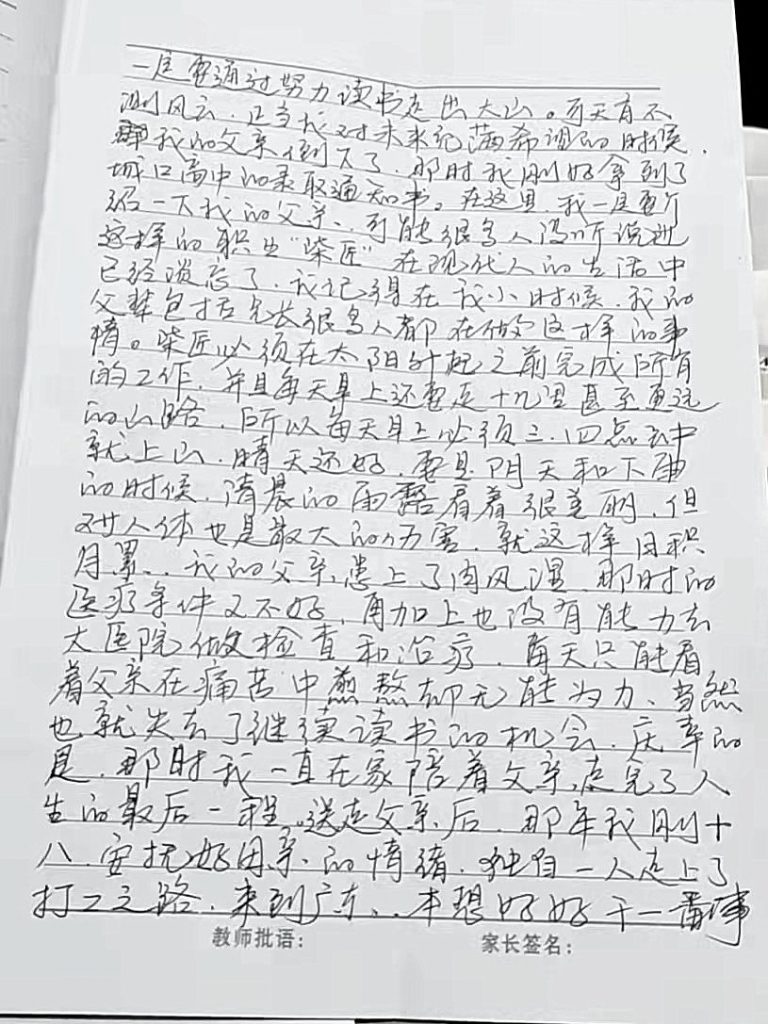 一定要通过努力读书走出大山。可天有不
测风云.正当我对未来充满希望的时候.
我的父亲倒下了.那时我刚好拿到了
城口高中的录取通知书。在这里.我一定要介
绍一下我的父亲、可能很多人没听说过
这样的职业"柴匠"在现代人的生活中
已经淡忘了.我记得在我小时候.我的
父辈包括兄长很多人都在做这样的事
情。柴匠必须在太阳升起之前完成所有
的工作.并且每天早上还要走十几里甚至更远
的山路.所以每天早上必须三.四点钟
就上山.晴天还好.要是阴天和下雨
的时候.清晨的雨露看着很美丽.但
对人体也是最大的伤害.就这样日积
月累、我的父亲患上了肉风湿.那时的
医疗条件又不好.再加上也没有能力去
大医院做检查和治疗.每天只能看
着父亲在痛苦中煎熬却无能为力、当然
也就失去了继续读书的机会.庆幸的
是.那时我一直在家陪着父亲走完了人
生的最后一程.送走父亲后.那年我刚十
八.安抚好母亲的情绪.独自一人走上了
打工之路.来到广东、本想好好干一番事
教师批语: 家长签名: